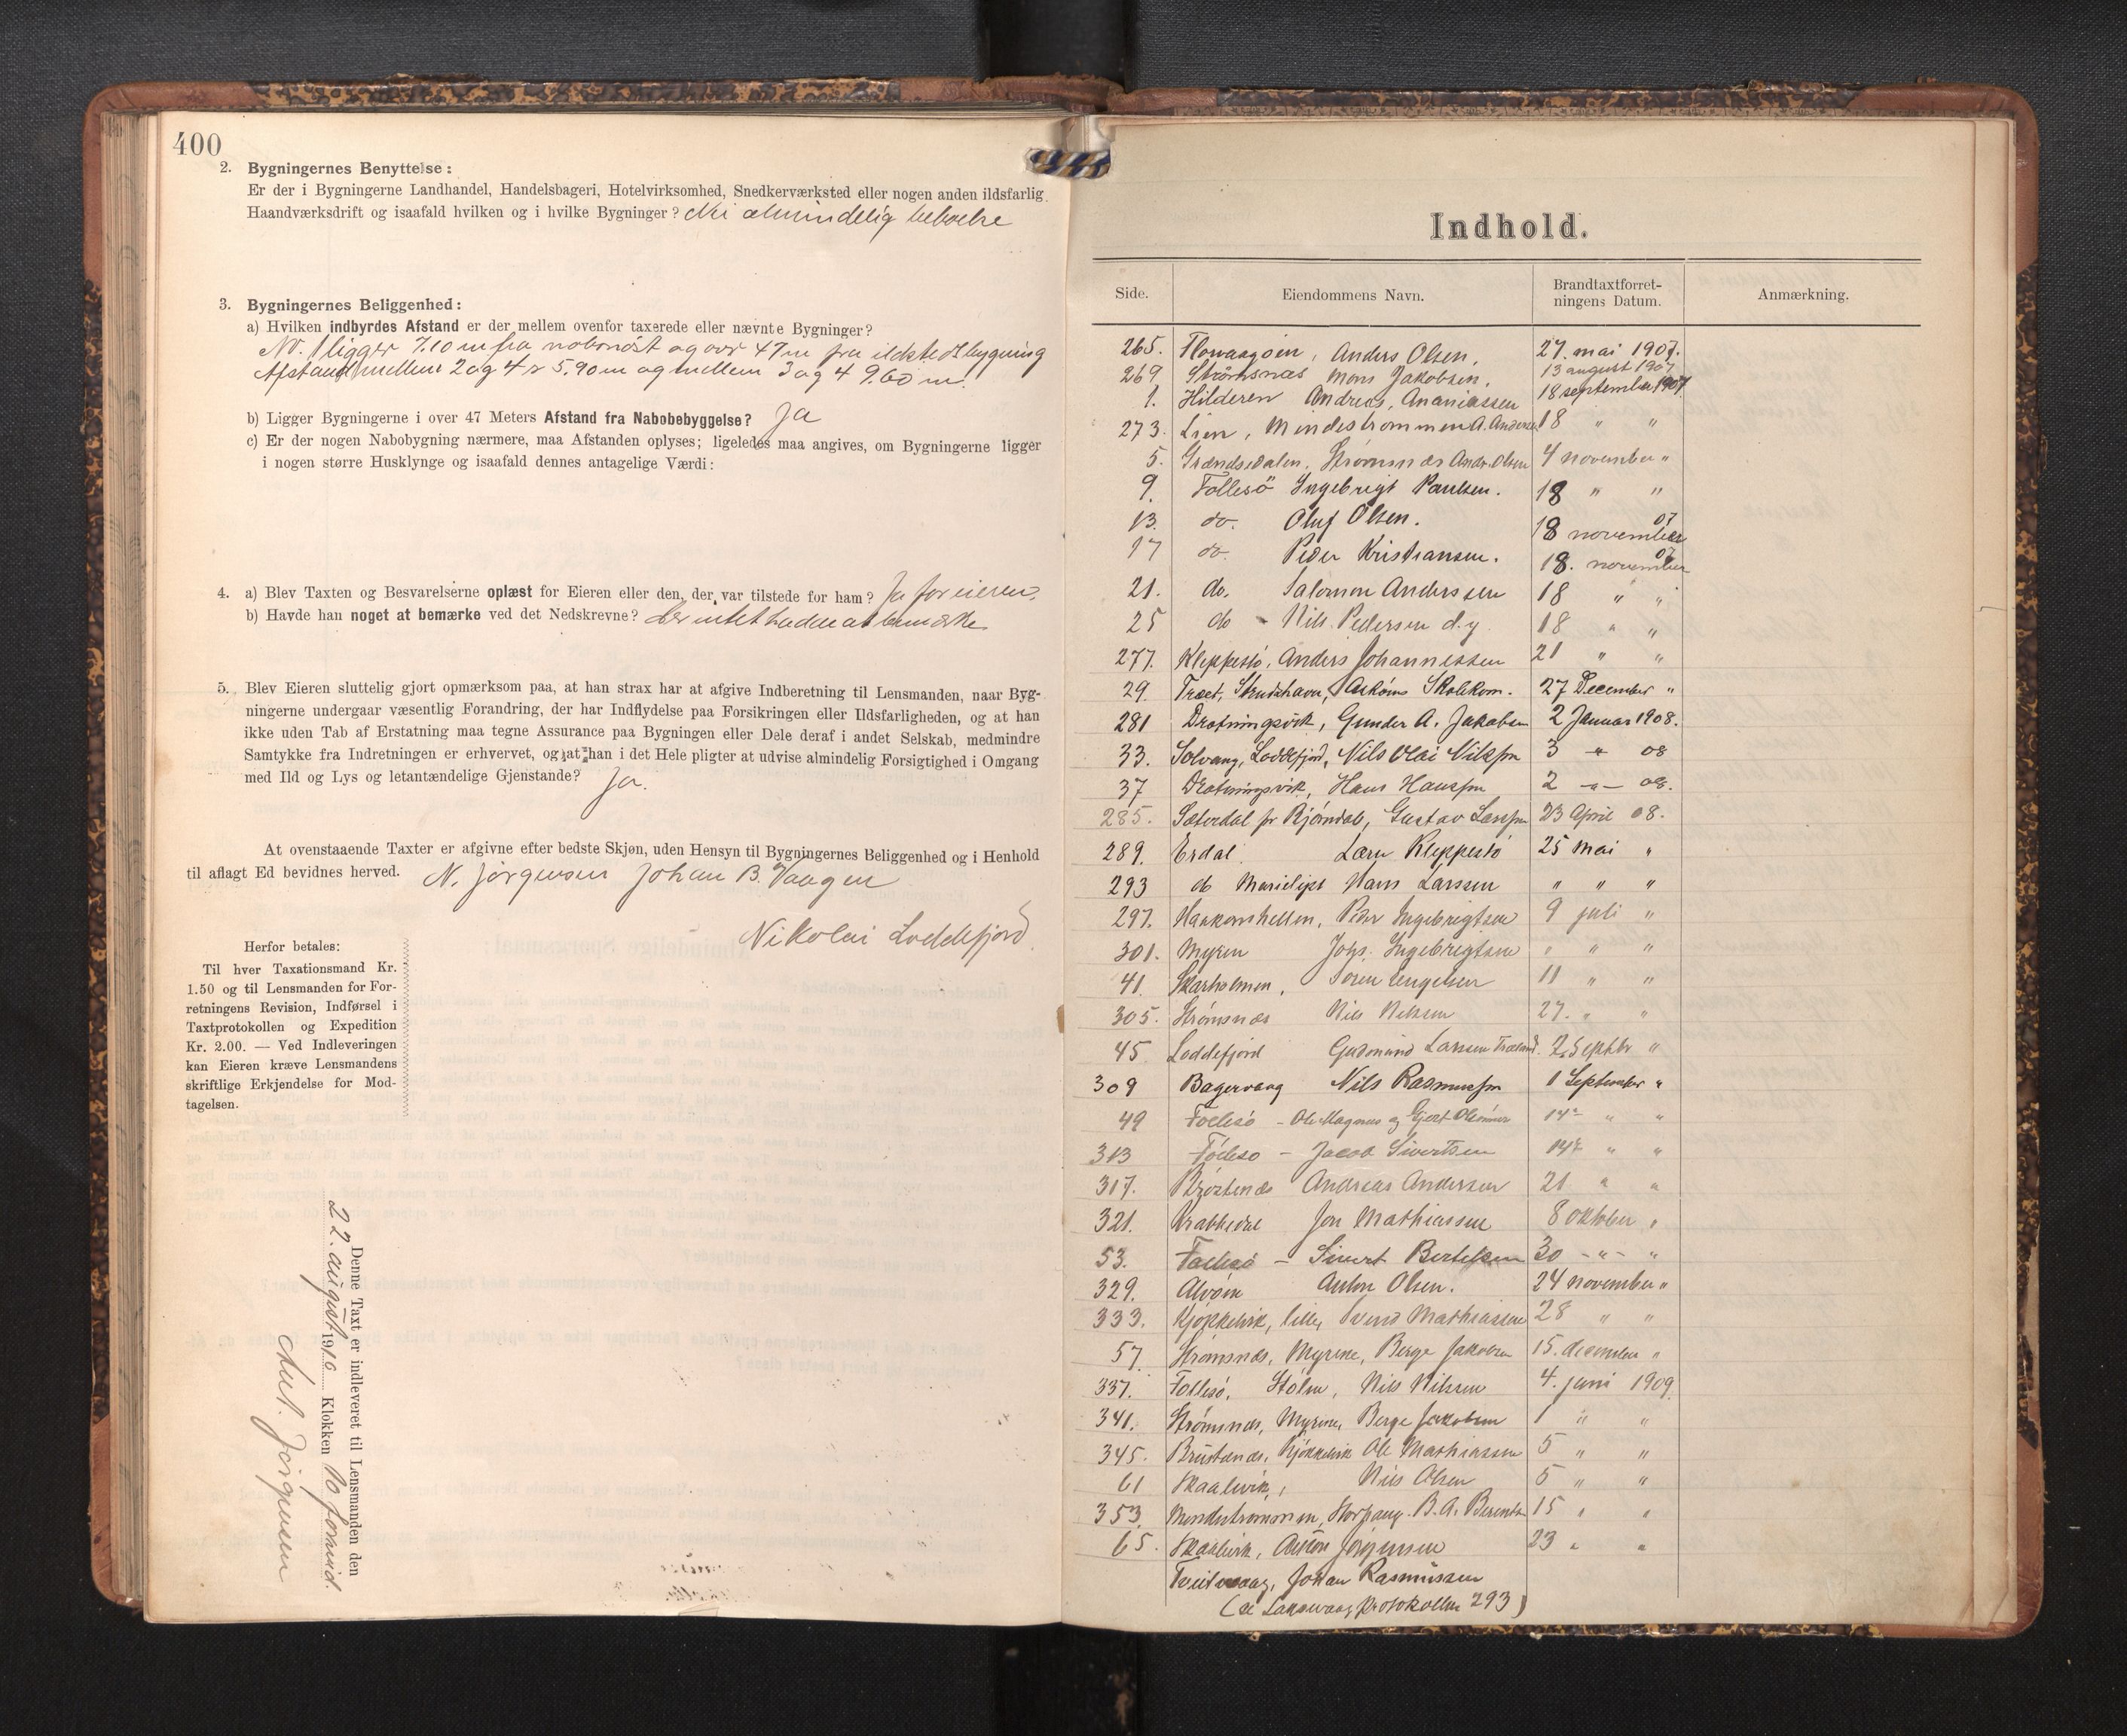 400
2. Bygningernes Benyttelse:
Er der i Bygningerne Landhandel, Handelsbageri, Hotelvirksomhed, Snedkerværksted eller nogen anden ildsfarlig
Haandværksdrift og isaafald hvilken og i hvilke Bygninger? Nei almindelig beboelse
3. Bygningernes Beliggenhed:
a) Hvilken indbyrdes Afstand er der mellem ovenfor taxerede eller nævnte Bygninger?
No. 1 ligger 7.10 m fra nabonøst og over 47 m fra bygning
Afstand mellem 2 og 4 = 5.90 m og mellem 3 og 4 9.60 m.
b) Ligger Bygningerne i over 47 Meters Afstand fra Nabobebyggelse? Ja
c) Er der nogen Nabobygning nærmere, maa Afstanden oplyses; ligeledes maa angives, om Bygningerne ligger
i nogen større Husklynge og isaafald dennes antagelige Værdi:
4. a) Blev Taxten og Besvarelserne oplæst for Eieren eller den, der var tilstede for ham? Ja for eieren,
b) Havde han noget at bemærke ved det Nedskrevne? der intet hadde at bemærke
5. Blev Eieren sluttelig gjort opmærksom paa, at han strax har at afgive Indberetning til Lensmanden, naar Byg-
ningerne undergaar væsentlig Forandring, der har Indflydelse paa Forsikringen eller Ildsfarligheden, og at han
ikke uden Tab af Erstatning maa tegne Assurance paa Bygningen eller Dele deraf i andet Selskab, medmindre
Samtykke fra Indretningen er erhvervet, og at han i det Hele pligter at udvise almindelig Forsigtighed i Omgang
med Ild og Lys og letantændelige Gjenstande? Ja.
At ovenstaaende Taxter er afgivne efter bedste Skjøn, uden Hensyn til Bygningernes Beliggenhed og i Henhold
til aflagt Ed bevidnes herved. N. Jørgensen Johan B. Vaagen
Nikolai Loddefjord
Herfor betales:
Til hver Taxationsmand Kr.
1.50 og til Lensmanden for For-
retningens Revision, Indførsel i
Taxtprotokollen og Expedition
Kr. 2.00. — Ved Indleveringen
kan Eieren kræve Lensmandens
skriftlige Erkjendelse for Mod-
tagelsen.
Denne Taxt er indleveret til Lensmanden den
22. august 1910 Klokken 10 formid.
Ant. Jørgensen
Indhold.
Side. Eiendommens Navn. Brandtaxtforret-
ningens Datum. Anmærkning.
265. Flowaagøen, Anders Olsen, 27. mai 1907.
269 Strømsnæs Mons Jakobsen, 13 august 1907
1. Hilderen Andreas Ananiassen 18 september 1907
273. Lien, Mindestrømmen A. Andersen 18 " "
5. Grændsedalen, Strømsnæs Andr. Olsen 4 november "
9. Follesö Ingebrigt Paulsen. 18 " "
13. do. Oluf Olsen. 18 november 07
17 do. Peder Kristiansen. 18. november 07
21. do. Salomon Anderssen 18 " "
25 do Nils Pedersen d.y. 18 " "
277. Kleppestø, Anders Johannessen 21 " "
29. Træet, Strudshavn, Askøens Skolekom. 27 December "
281 Drotningsvik, Gunder A. Jakobsen 2 Januar 1908.
33. Solvang, Loddefjord, Nils Olai Nilssen 3 " 08
37 Drotningsvik, Hans Hanssen 2 — " — 08.
285. Sæterdal pr Bjørndal, Gustav Larssen 23 April 08.
289. Erdal Lars Kleppestø 25 mai "
293 do Marielyst Hans Larssen " " "
297. Haakonshellen, Peder Ingebrigtsen 9 juli "
301. Myren Johs. Ingebrigtsen " " "
41. Skarholmen, Søren Engelsen 11 " "
305. Strømsnæs Nils Nilssen 27. " "
45 Loddefjord Gudmund Larssen Træland 2. Septbr "
309 Bagervaag Nils Rasmussen 1 September "
49 Follesö - Ole Magnus og Gjert 14 " "
313 Follesø - Jacob Sivertsen 14 " "
317. Andreas Andersen 21 " "
321. Krabbedal Jon Mathiassen 8 oktober "
53. Follesø - Sivert Bertelsen 30 - " - "
329. Alvøen Anton Olsen. 24 november "
333. Kjøkkelvik, lille, Svend Mathiassen 28 " "
57. Strømsnæs, Myrene, Berge Jakobsen 15. december "
337. Follesø, Stølen, Nils Nilssen 4. juni 1909
341. Strømsnæs, Myrene, Berge Jakobsen 1 " "
345. Brustenæs, Kjøkkelvik Ole Mathiassen 5 " "
61 Skaalevik, Nils Olsen 5 " "
353. Mindestrømmen, B. A. Berentsen 15 " "
65. Skaalevik, Anton Jørgensen 23 " "
Tveitevaag, Johan Rasmussen
(se Laksevaag protokollen 293)